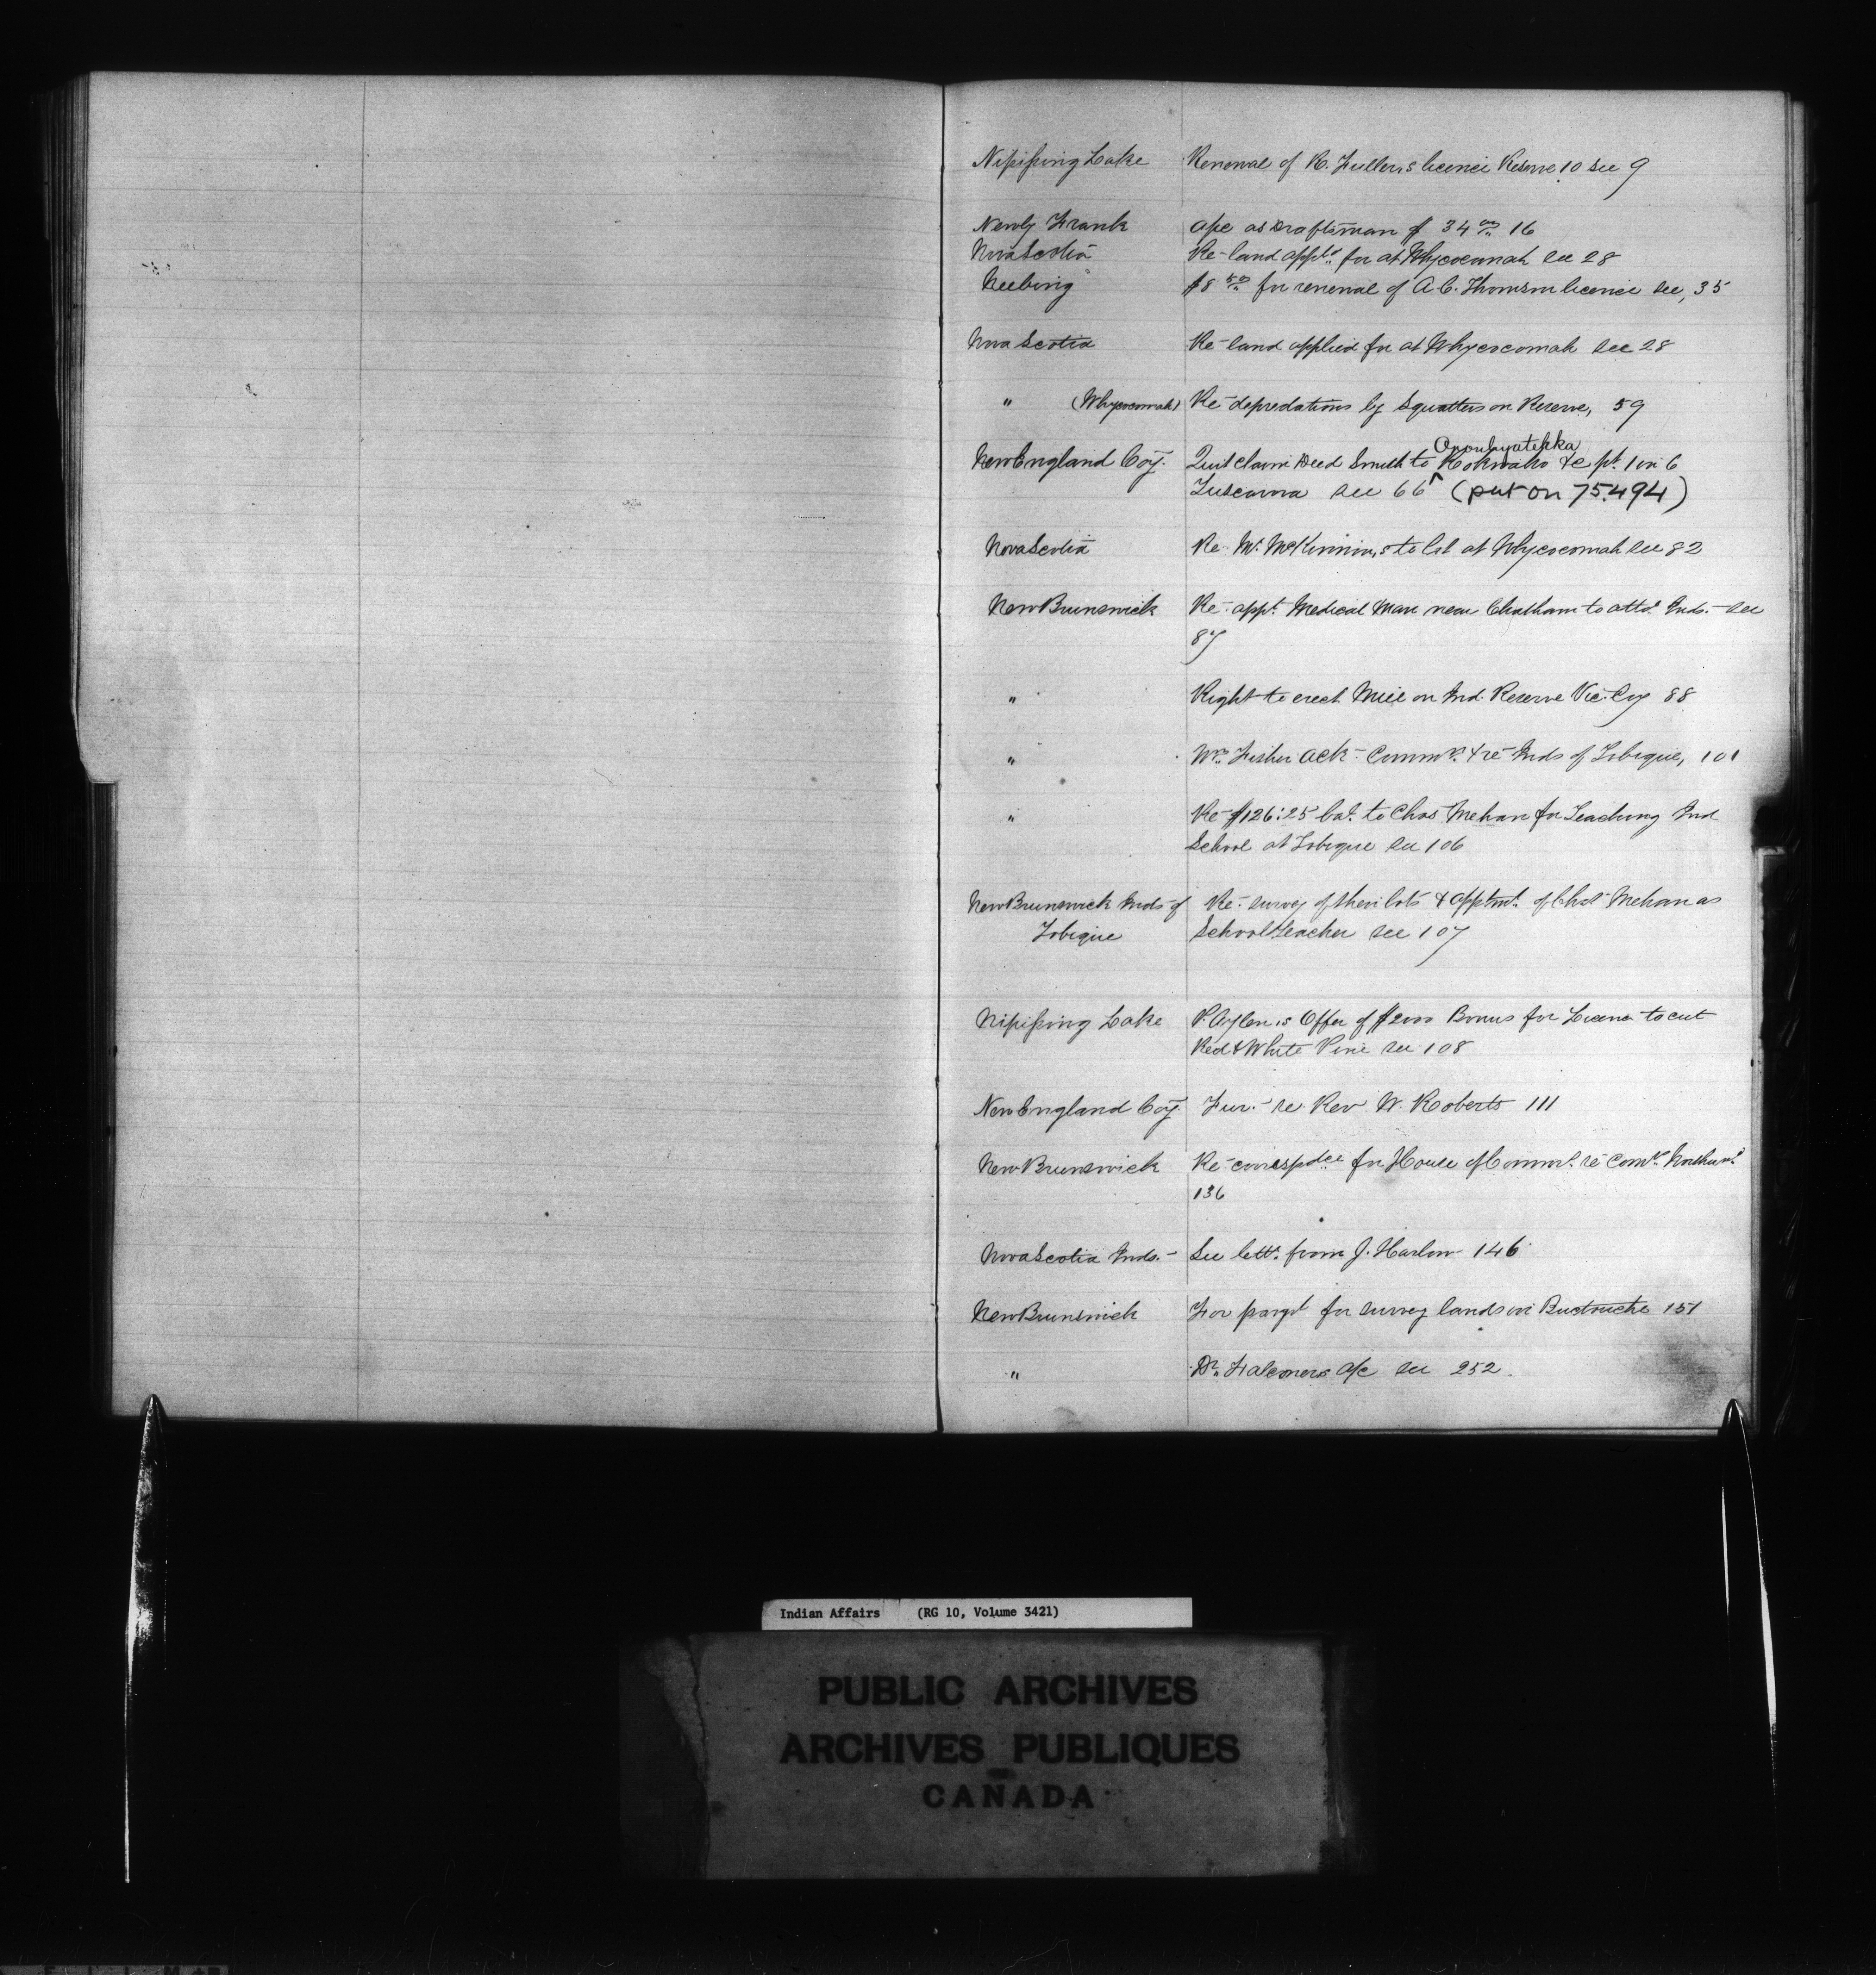 Nipissing Lake Renewal of R. Fuller,s licence Reserve 10 see 9
Newly Frank a/c as Draftsman $34 00 16
Nova Scotia Re- land appld for at Whycocomah see 28
Neebing $8 50 for renewal of A.C. Thomson licence see, 35
Nova Scotia Re- land applied for at Whycocomah see 28
" (Whycocomah) Re- depredations by Squatters on Reserve, 59
Oronhyatekka
New England Coy. Quit claim Deed Smith to Kokwaho &c pt. 1 in 6
Tuscarora see 66 (put on 75.494)
Nova Scotia Re- Mr. McKinnin,s to lot at Whycocomah see 82
New Brunswick Re- appt. Medical Man near Chatham to attd. Inds.- see
87
" Right to erect Mill on Ind. Reserve Vic. Coy 88
" Wm. Fisher ack- Commn. & re- Inds of Tobique, 101
" Re- $126:25 bal. to Chas Mehan for Teaching Ind
School at Tobique see 106
New Brunswick Inds of Re- survey of their lots & apptmt. of Chas Mehan as
Tobique School teacher see 107
Nipissing Lake P. Aylen,s Offer of $2000 Bonus for License to cut
Red & White Pine see 108
New England Coy Fur.- re Rev W. Roberts 111
New Brunswick Re- correspdce for House of Commns. re
136
Nova Scotia Inds.- See lettr. from J. Harlow 146
New Brunswick For paymt for survey lands in Buctouche 151
" Dr. Falconers a/c see 252.
Indian Affairs (RG 10, Volume 3421)
PUBLIC ARCHIVES
ARCHIVES PUBLIQUES
CANADA